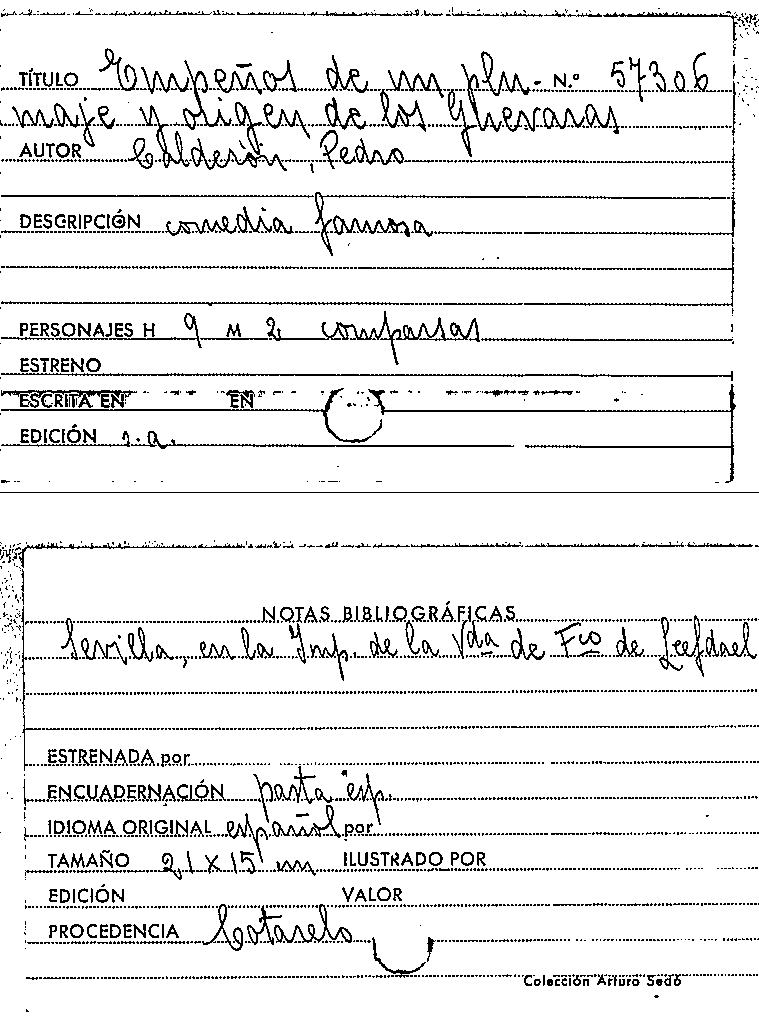 TÍTULO Empeños de un plu- N.º 57306
maje y origen de los Ghevaras
AUTOR Calderón, Pedro
DESCRIPCIÓN comedia famosa
PERSONAJES H 9 M 2 comparsas
ESTRENO
ESCRITA EN EN
EDICIÓN s.a.
NOTAS BIBLIOGRÁFICAS
Sevilla, en la Imp. de la Vda de Fco de Leefdael
ESTRENADA por
ENCUADERNACIÓN pasta esp.
IDIOMA ORIGINAL español por
TAMAÑO 21 x 15 cm ILUSTRADO POR
EDICIÓN VALOR
PROCEDENCIA Cotarelo
Colección Arturo Sedó